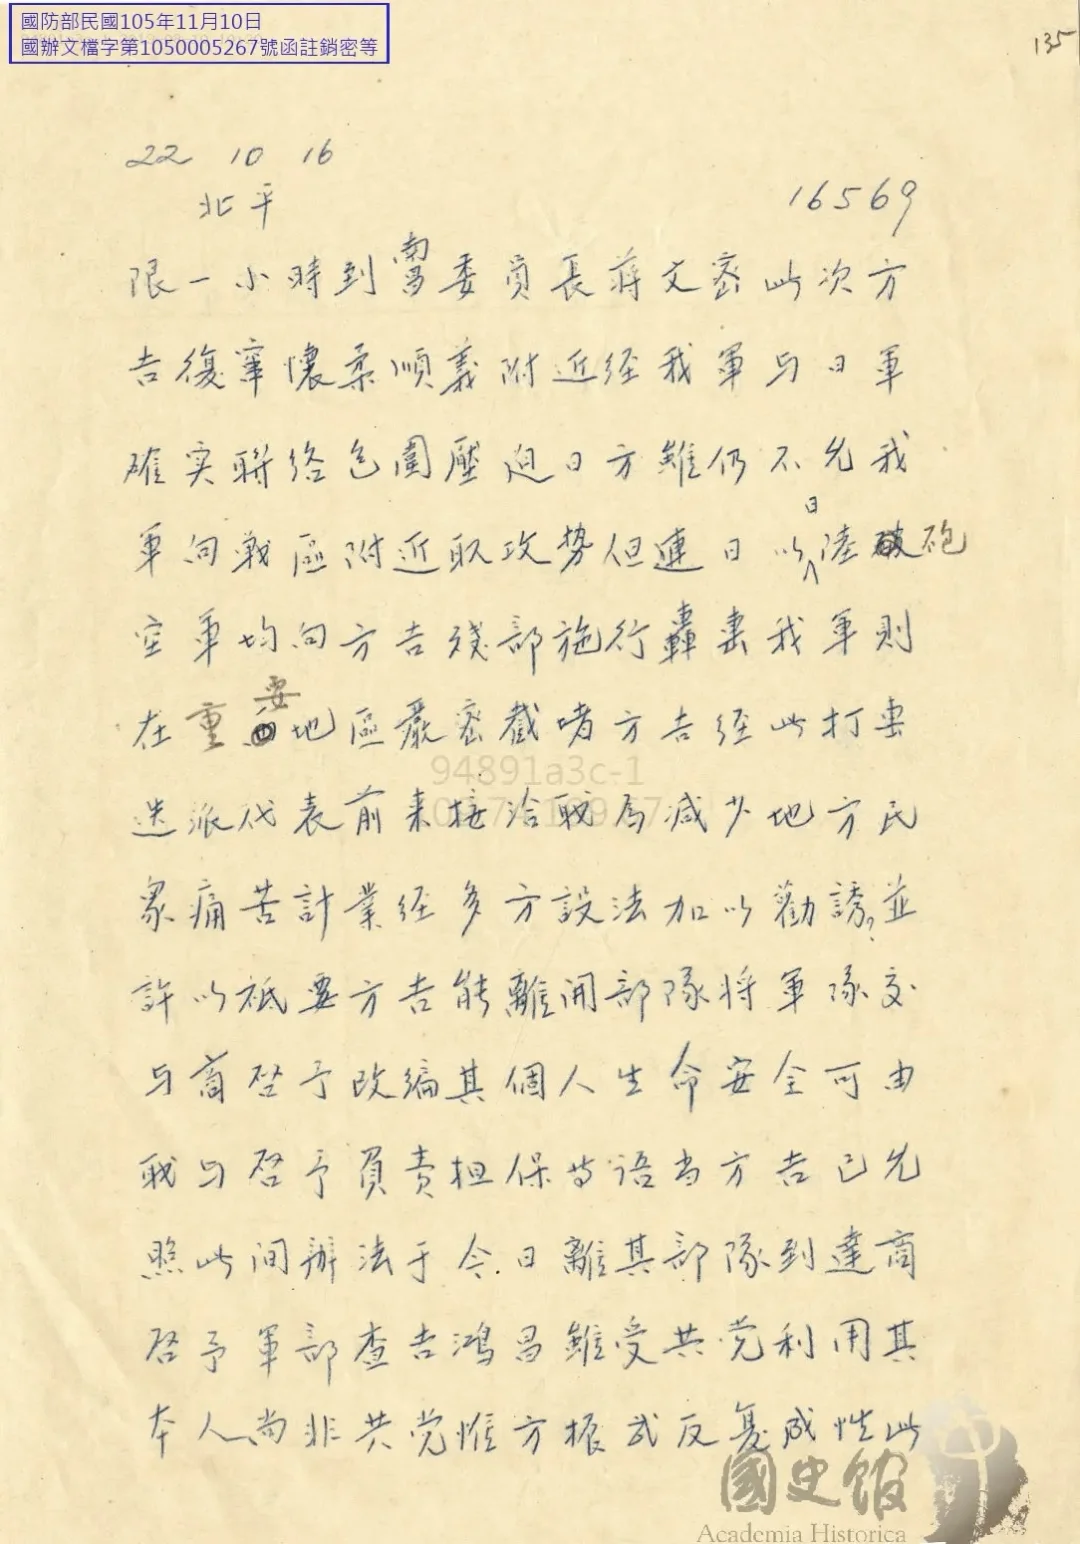 國防部民國105年11月10日
國辦文檔字第1050005267號函註銷密等
135
22 10 16
北平
16569
限一小時到南昌委員長蔣文密此次方
吉復竄懷柔順義附近经我軍与日軍
確实聯络包圍壓迫日方雖仍不允我
軍向戰區附近取攻势但連日以日陸砲
空軍均向方吉殘部施行轟击我軍則
在重要地區嚴密截堵方吉经此打击
迭派代表前来接洽职為减少地方民
眾痛苦計業经多方設法加以勸誘並
許以祇要方吉能離開部隊将軍隊交
与商啓予改編其個人生命安全可由
职与啓予負责担保等語当方吉已允
照此间辦法于今日離其部隊到達商
啓予軍部查吉鴻昌雖受共党利用其
本人尚非共党惟方振武反复成性此
94891a3c-1
國史館
Academia Historica